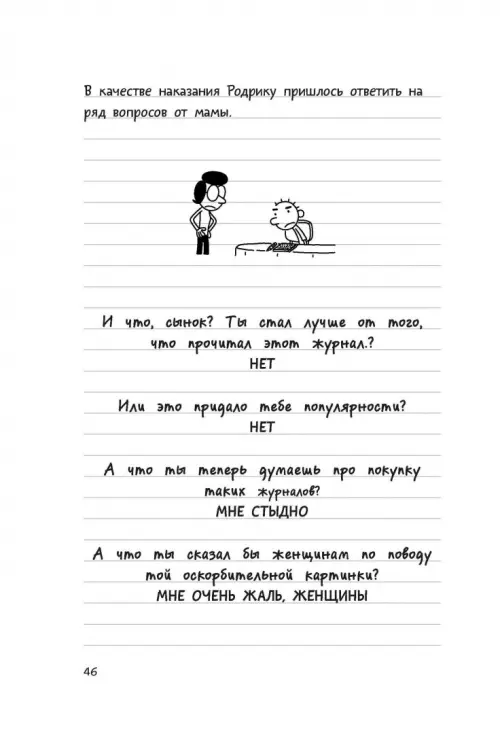 В качестве наказания Родрику пришлось ответить на
ряд вопросов от мамы.
И что, сынок? Ты стал лучше от того,
что прочитал этот журнал.?
НЕТ
Или это придало тебе популярности?
НЕТ
А что ты теперь думаешь про покупку
таких журналов?
МНЕ СТЫДНО
А что ты сказал бы женщинам по поводу
той оскорбительной картинки?
МНЕ ОЧЕНЬ ЖАЛЬ, ЖЕНЩИНЫ
46